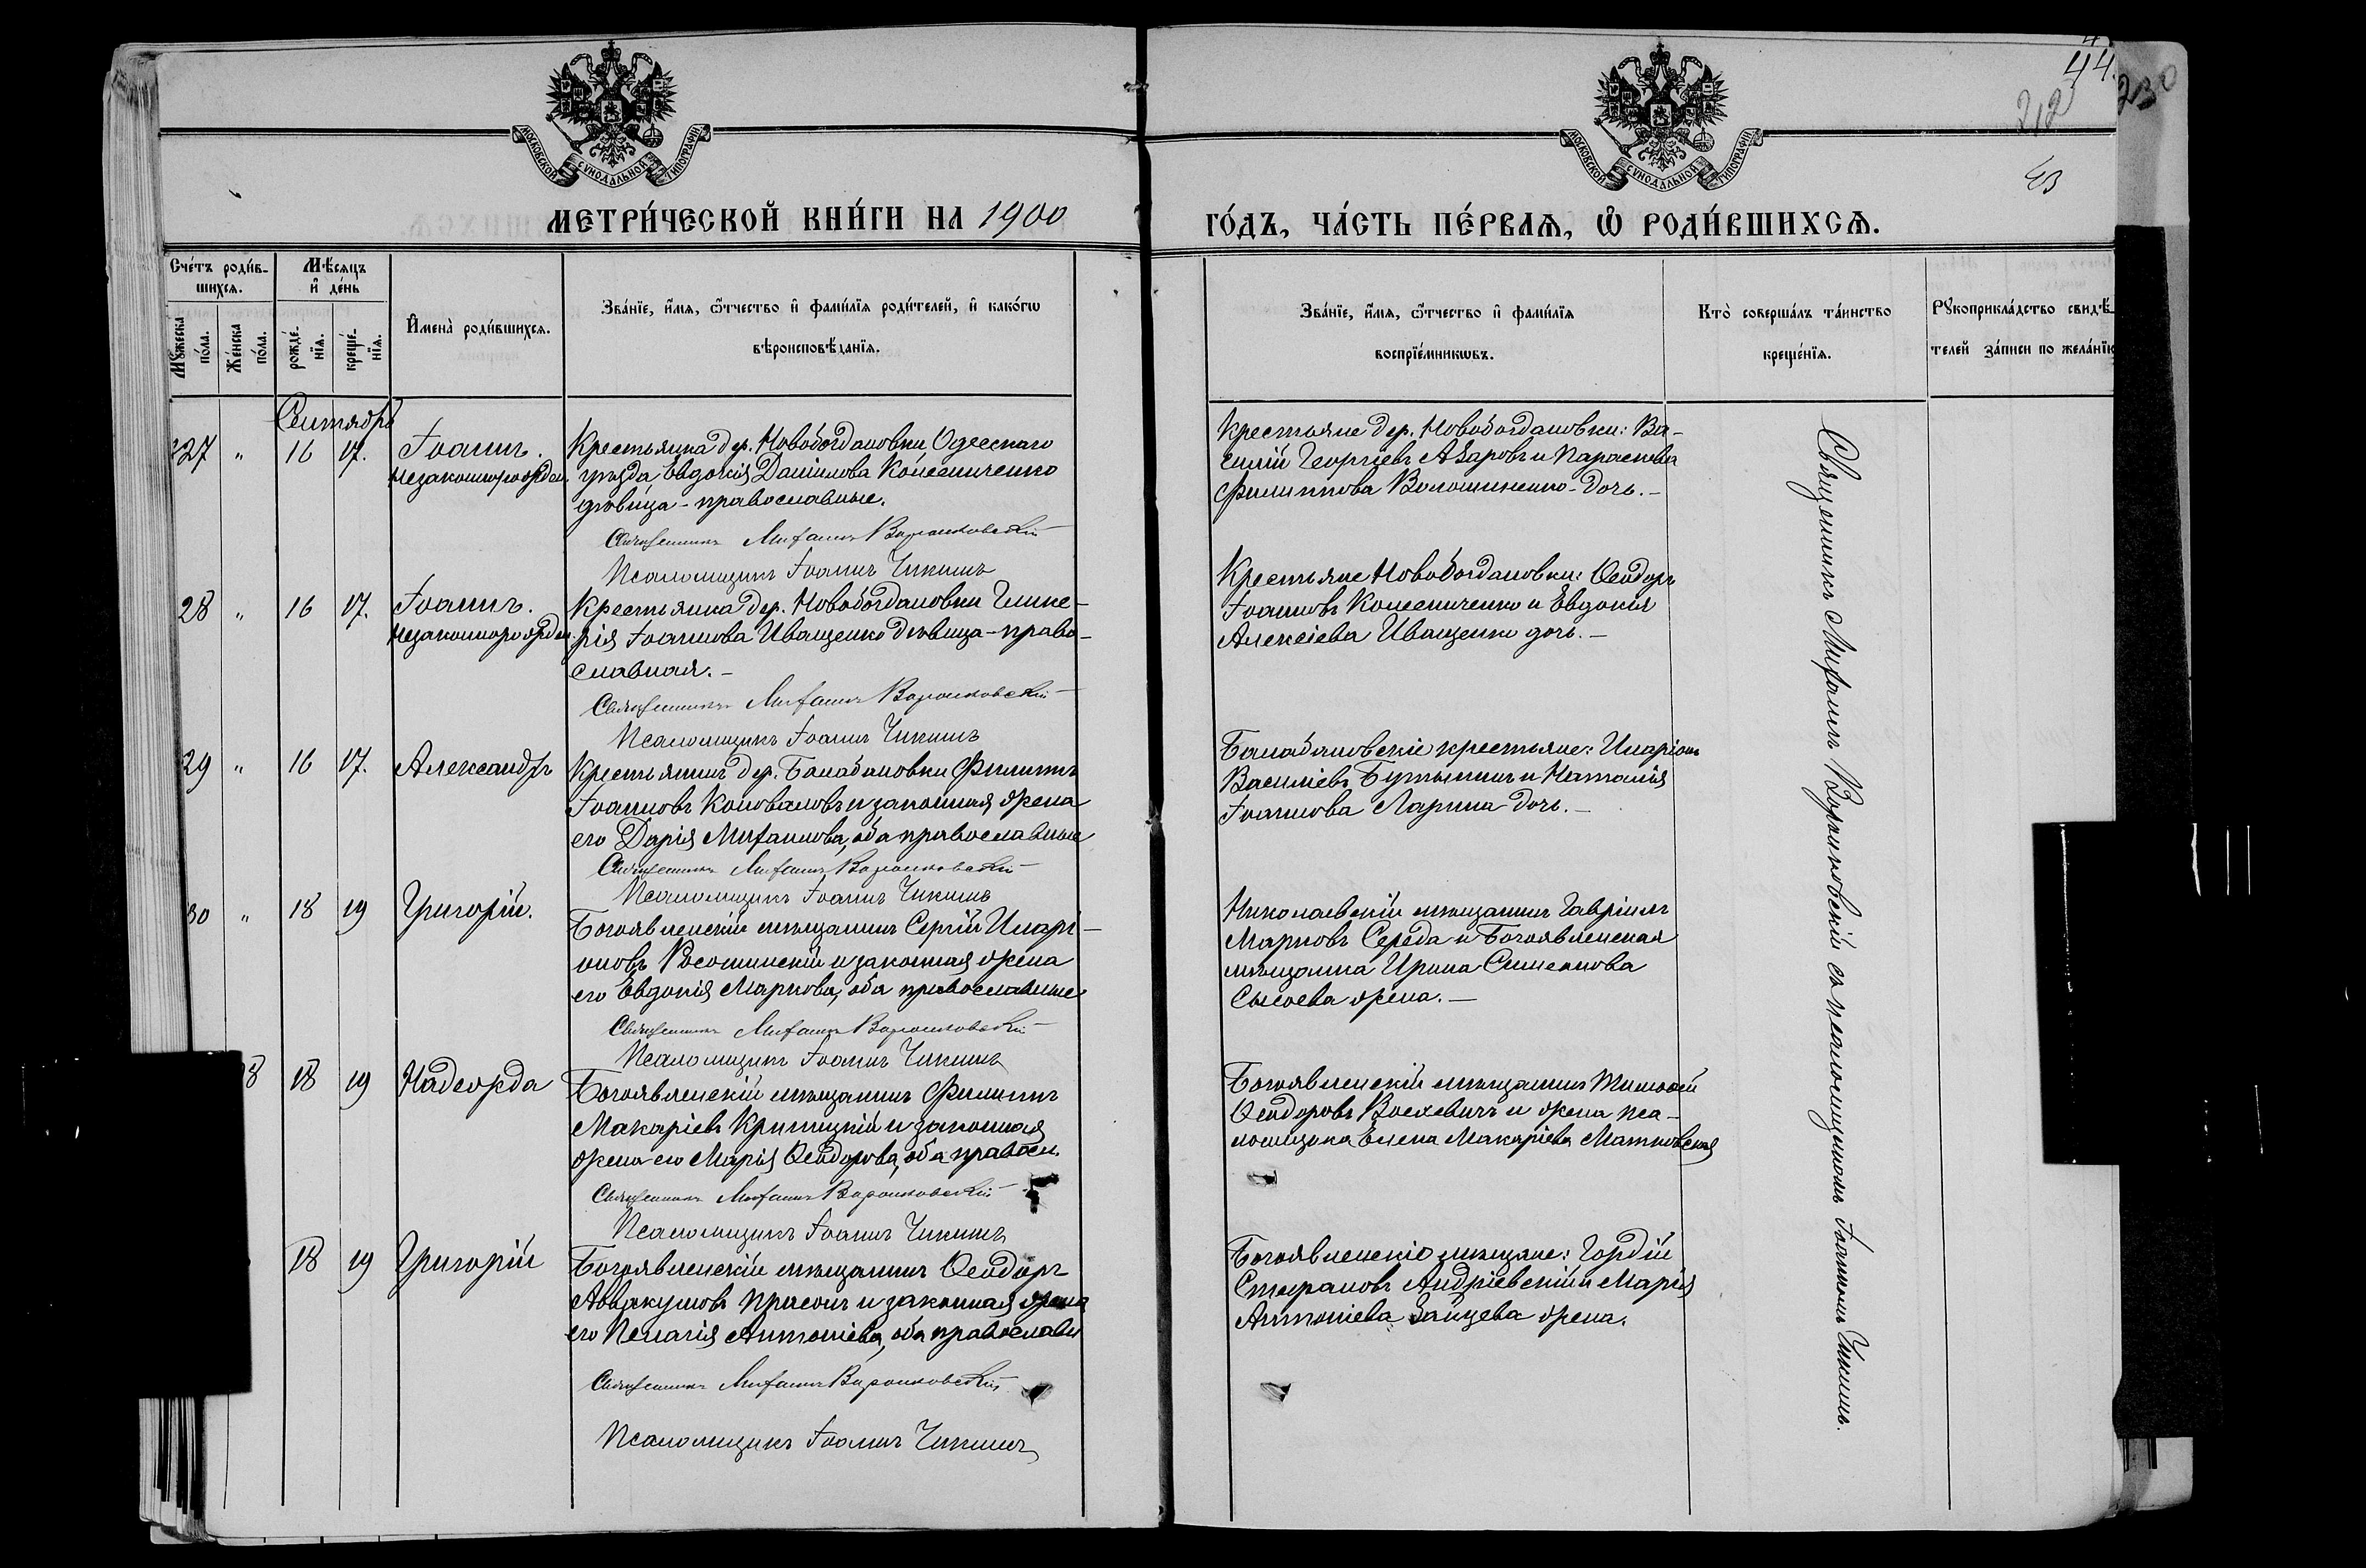 44.
212
230
43
МОСКОВСКОЙ СУНОДАЛЬНОЙ ТИПОГРАФІИ
МОСКОВСКОЙ СУНОДАЛЬНОЙ ТИПОГРАФІИ
МЕТРИ́ЧЕСКОЙ КНИ́ГИ НА 1900
ГО́ДЪ, ЧА́СТЬ ПЕ́РВАѦ, Ѡ҆ РОДИ́ВШИХСѦ.
Сче́тъ роди́в-
шихсѧ.
Мꙋ́жеска по́ла.
Же́нска по́ла.
Мѣ́сѧцъ
и҆ де́нь
рожде́-
нїѧ.
креще́-
нїѧ.
И҆мена̀ роди́вшихсѧ.
Зва́нїе, и҆́мѧ, ѻ҆́тчество и҆ фами́лїѧ роди́телей, и҆ како́гѡ
вѣроисповѣ́данїѧ.
Зва́нїе, и҆́мѧ, ѻ҆́тчество и҆ фами́лїѧ
воспрїе́мникѡвъ.
Кто̀ соверша́лъ та́инство
креще́нїѧ.
Рꙋкоприкла́дство свидѣ́-
телей за́писи по жела́нїю
Сентябрь
227 " 16 17. Іоаннъ.
незаконнорожден.
Крестьянка дер. Новобогдановки, Одесскаго
уѣзда, Евдокія Даніилова Колесниченко
дѣвица - православные.
Священникъ Михаилъ Воронковскій
Псаломщикъ Іоаннъ Чикишъ
Крестьяне дер. Новобогдановки: Ва-
силій Георгіевъ Азаровъ и Параскева
Филиппова Волошиненко - дочь. -
28 " 16 17. Іоаннъ.
незаконнорожден.
Крестьянка дер. Новобогдановки Глике-
рія Іоаннова Иващенко дѣвица - право-
славная. -
Священникъ Михаилъ Воронковскій
Псаломщикъ Іоаннъ Чикишъ
Крестьяне Новобогдановки: Ѳеодоръ
Іоанновъ Колесниченко и Евдокія
Алексіева Иващенко дочь. -
29 " 16 17. Александръ
Крестьянинъ дер. Балабановки Филиппъ
Іоанновъ Коноваловъ и законная жена
его Дарія Михаилова, оба православные
Священникъ Михаилъ Воронковскій
Псаломщикъ Іоаннъ Чикишъ
Балабановскіе крестьяне: Иларіонъ
Василіевъ Бутылинъ и Наталія
Іоаннова Ларина дочь. -
30 " 18 19 Григорій.
Богоявленскій мѣщанинъ Сергій Иларі-
оновъ Росошинскій и законная жена
его Евдокія Маркова, оба православные
Священникъ Михаилъ Воронковскій
Псаломщикъ Іоаннъ Чикишъ
Николаевскій мѣщанинъ Гавріилъ
Марковъ Середа и Богоявленская
мѣщанка Ирина Симеонова
Сысоева жена. -
8 18 19 Надежда
Богоявленскій мѣщанинъ Филиппъ
Макаріевъ Криницкій и законная
жена его Марія Ѳеодорова, оба правосл.
Священникъ Михаилъ Воронковскій
Псаломщикъ Іоаннъ Чикишъ
Богоявленскій мѣщанинъ Тимоѳей
Ѳеодоровъ и жена пса-
ломщика Елена Макаріева Матковская
18 19 Григорій
Богоявленскій мѣщанинъ Ѳеодоръ
Аввакумовъ Прасолъ и законная жена
его Пелагія Антоніева, оба православн
Священникъ Михаилъ Воронковскій
Псаломщикъ Іоаннъ Чикишъ
Богоявленскіе мѣщане: Гордій
Стефановъ Андріевскій и Марія
Антоніева Зайцева жена.
Священникъ Михаилъ Воронковскій съ псаломщикомъ Іоанномъ Чикишъ.